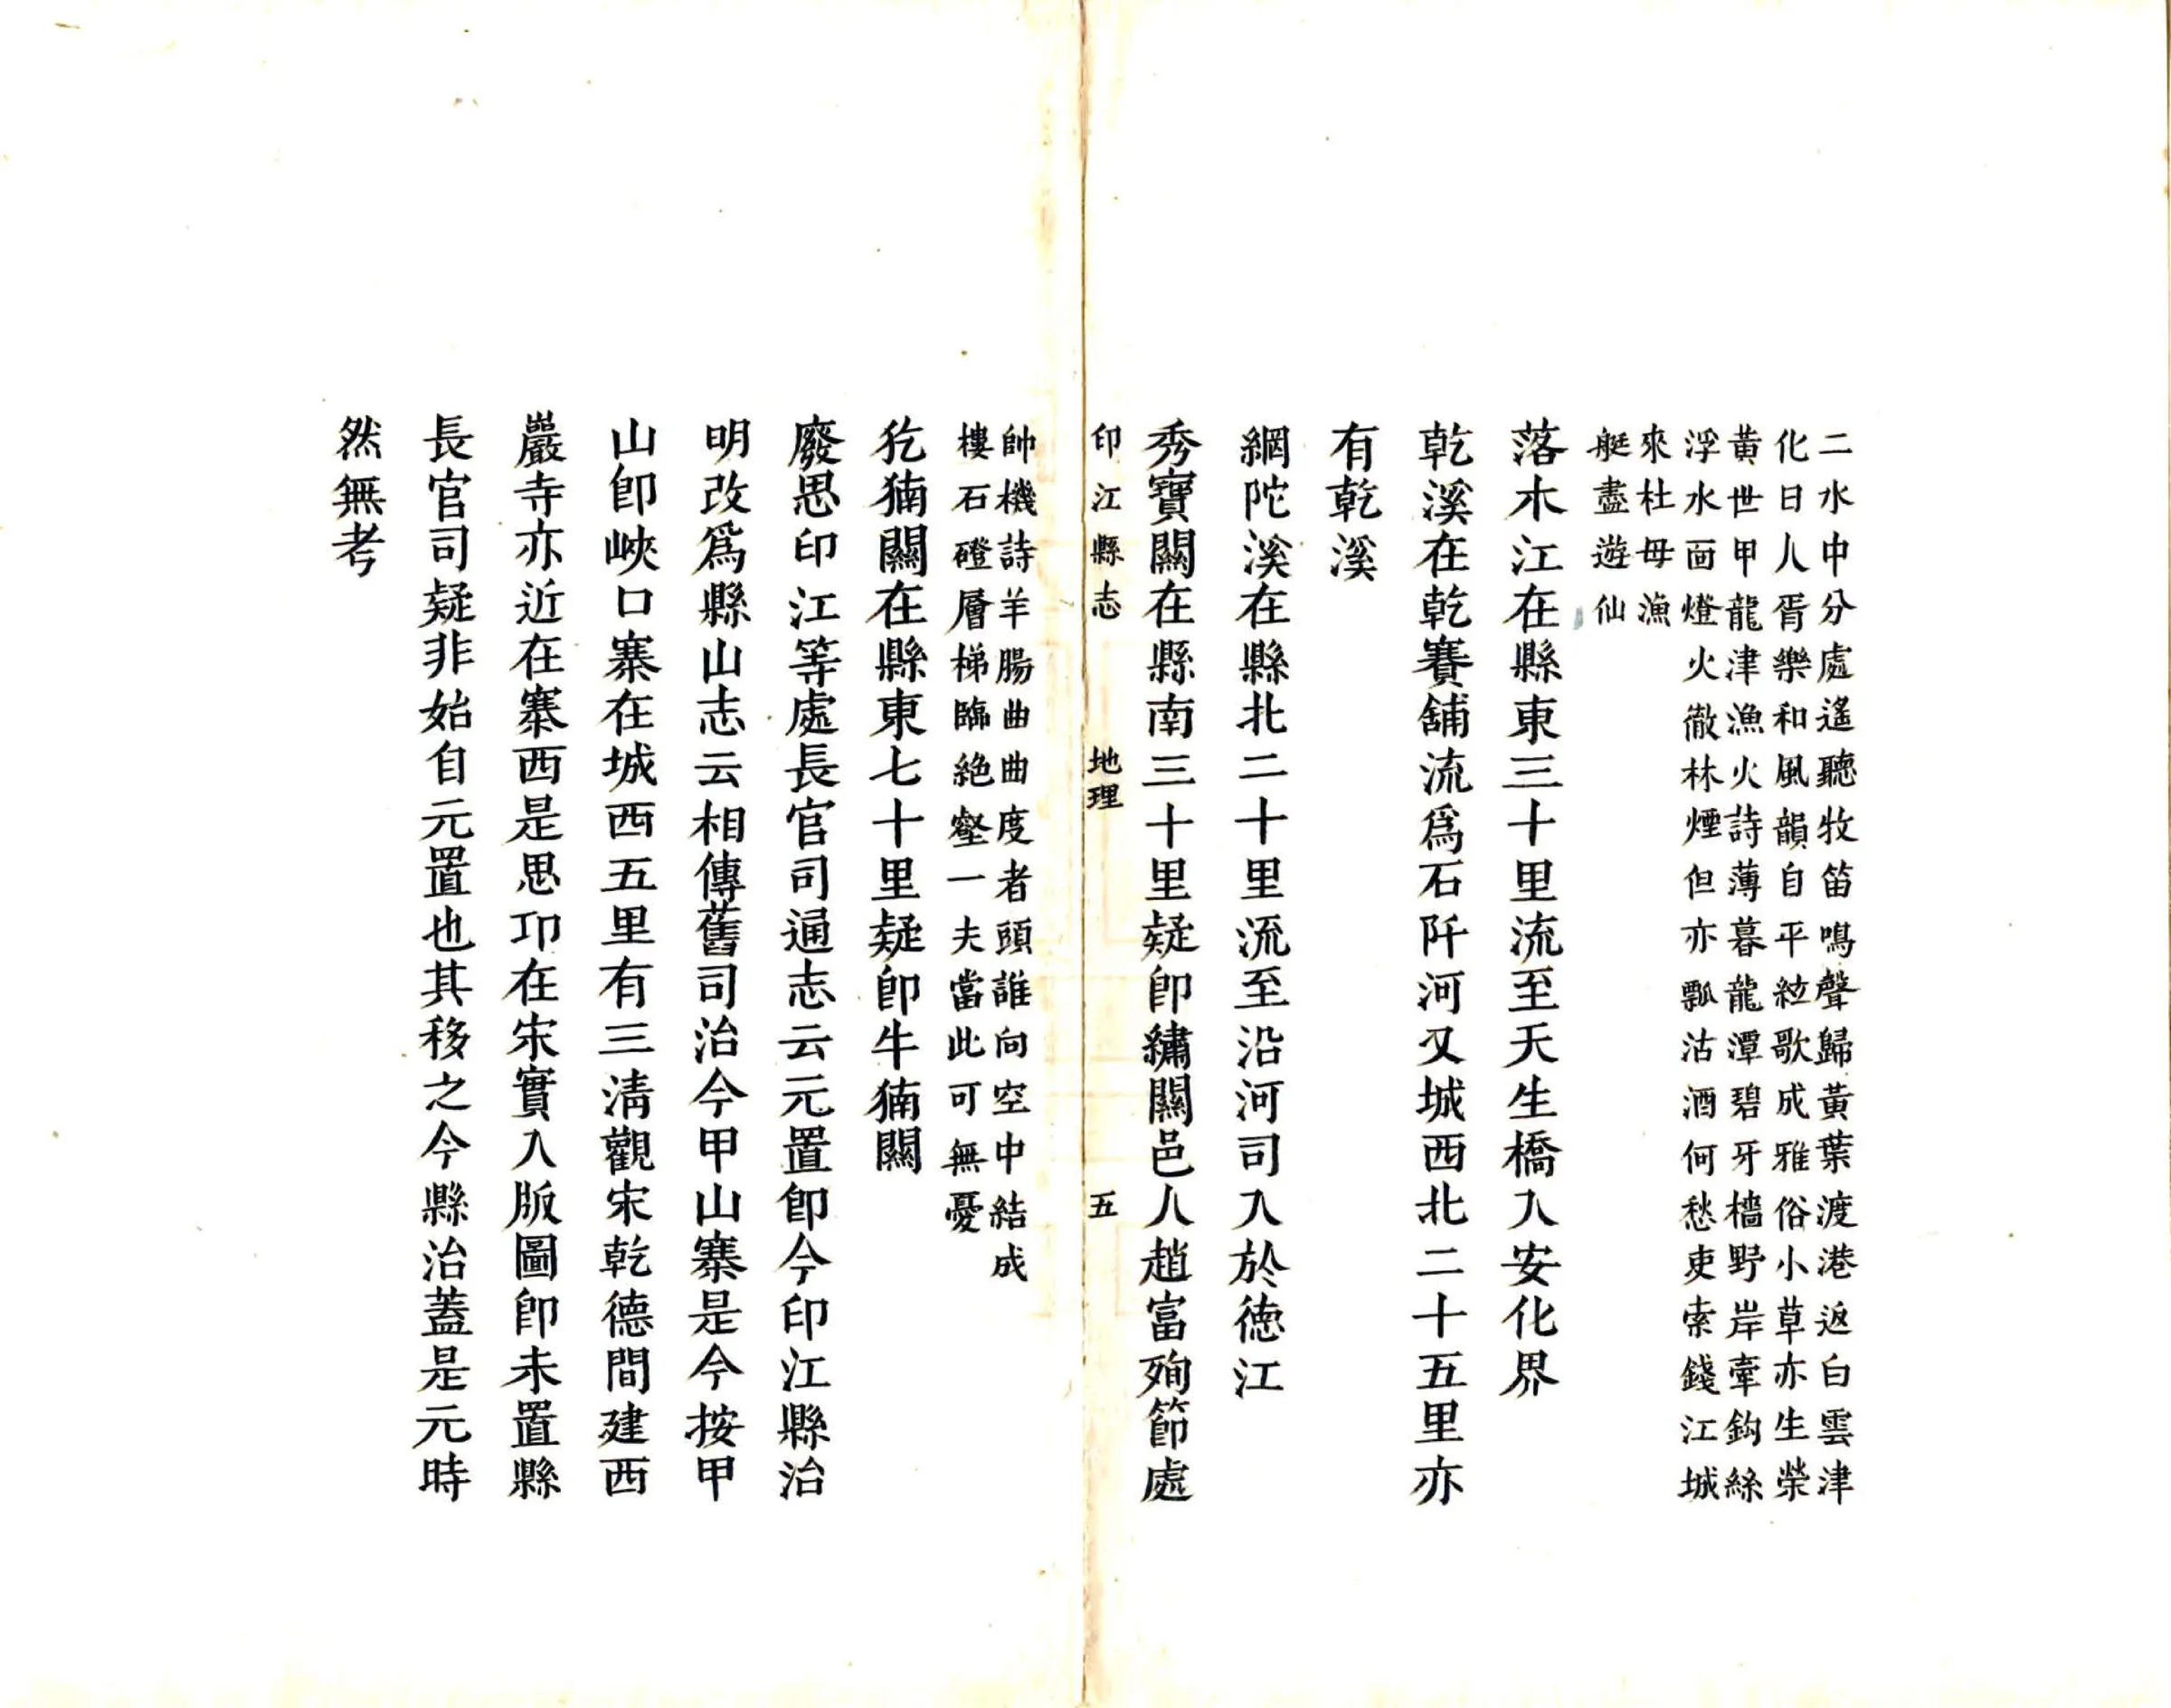 二水中分處遙聽牧笛鳴聲歸黃葉渡港返白雲津
化日人胥樂和風韻自平絃歌成雅俗小草亦生榮
黃世甲龍津漁火詩薄暮龍潭碧牙檣野岸牽鈎絲
浮水面燈火徹林煙但亦瓢沽酒何愁吏索錢江城
來杜母漁
艇盡遊仙
落木江在縣東三十里流至天生橋入安化界
乾溪在乾賽舖流爲石阡河又城西北二十五里亦
有乾溪
綱陀溪在縣北二十里流至沿河司入於德江
秀寶關在縣南三十里疑卽繡關邑人趙富殉節處
印江縣志 地理 五
帥機詩羊腸曲曲度者頭誰向空中結成
樓石磴層梯臨絶壑一夫當此可無憂
犵獳關在縣東七十里疑卽牛獳關
廢思印江等處長官司通志云元置卽今印江縣治
明改爲縣山志云相傳舊司治今甲山寨是今按甲
山卽峽口寨在城西五里有三淸觀宋乾德間建西
巖寺亦近在寨西是思卭在宋實入版圖卽未置縣
長官司疑非始自元置也其移之今縣治蓋是元時
然無考